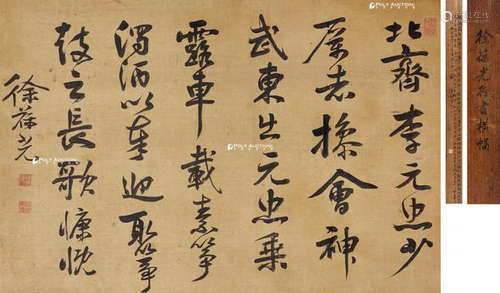 北齊李元忠少
厲志操會神
武東出元忠乘
露車載素箏
濁酒以奉迎取箏
鼓之長歌慷慨
徐葆光
徐葆光行書橫幅